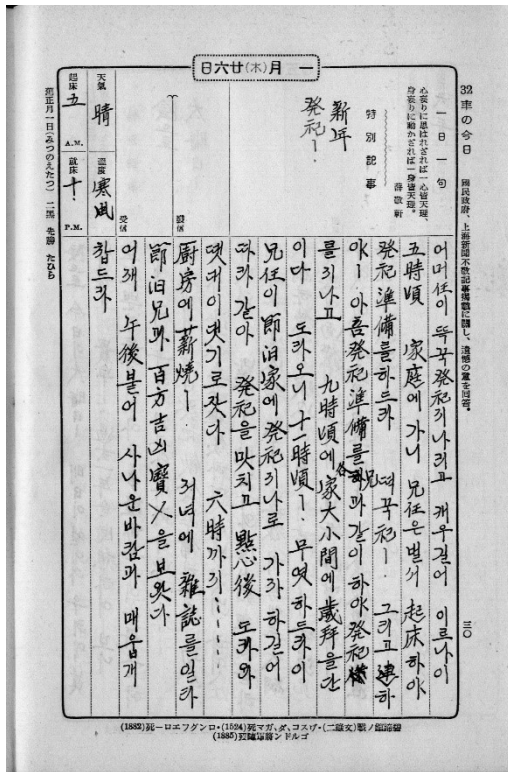 32年の今日
國民政府、上海新聞不敬記事掲載に關し、遺憾の意を回答。
三〇
一月(木)廿六日
一日一句
心妄りに思はれざれば一心皆天理、
身妄りに動かざれば一身皆天理。
薛敬軒
特別記事
新年
発祀ㅣ.
發信
受信
天氣
晴
溫度
寒風
起床
五
A.M.
就床
十.
P.M.
舊正月一日(みつのえたつ) 二黑 先勝 たひら
어머임이 뚝꾹発祀리나리고 깨우길어 이르나이
五時頃 家庭에가니 兄任은벌서 起床하야
発祀準備를하드라 떡꾹祀ㅣ. 그리고 하
야ㅣ. 아읍発祀準備를 各兄과같이 하야発祀
를리나고 九時頃에家大小間에歲拜을단
이다 도라오니十一時頃ㅣ. 무엇하드라이
兄任이節洎家에発祀리나로 가라하길어
따라 갈아 発祀을맛치고 點心後 도라와
댓대이댓기로잣다 六時까리
厨房에薪燒ㅣ. 저녁에 雜誌를일라
節洎兄과 百方吉凶寶ㄨ을보왓다
어래 午後붙어 사나운바람과 매웁개
찹드라
(1882)死ーロエフグンロ・(1524)死マガ、ダ、コスワ・
(1885)